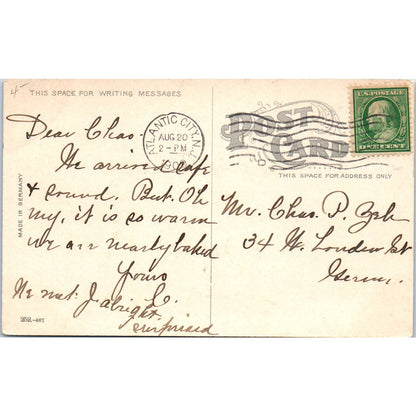 4-
THIS SPACE FOR WRITING MESSAGES
Dear Chas.
We arrived safe
& sound. But. Oh
my, it is so warm
we are nearly baked
Yours
We met J. alright.
surprised
MADE IN GERMANY
252.-467
ATLANTIC CITY, N.J.
AUG 20
2-PM
POST CARD
THIS SPACE FOR ADDRESS ONLY
U.S. POSTAGE
ONE CENT
Mr. Chas. P.
34 W.